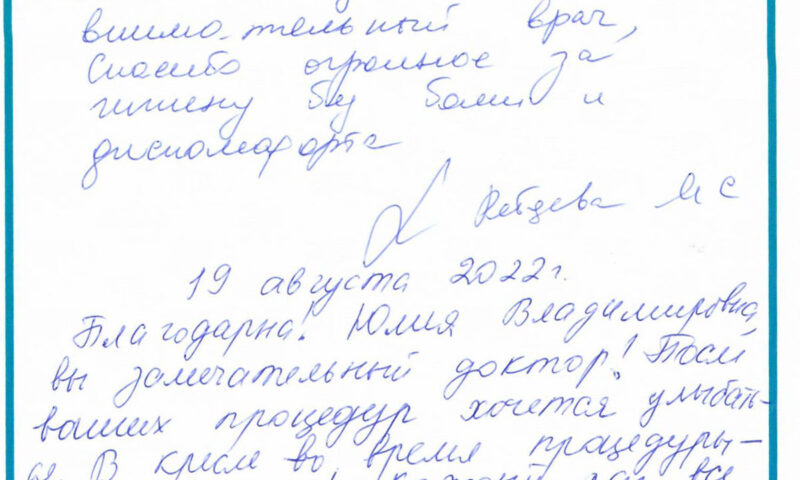 внимательный врач,
Спасибо огромное за
гигиену без боли и
дискомфорта
М С
19 августа 2022г.
Благодарна! Юлия Владимировна,
вы замечательный доктор! После
ваших процедур хочется улыбать-
ся. В кресле во время процедуры-
каждый раз все